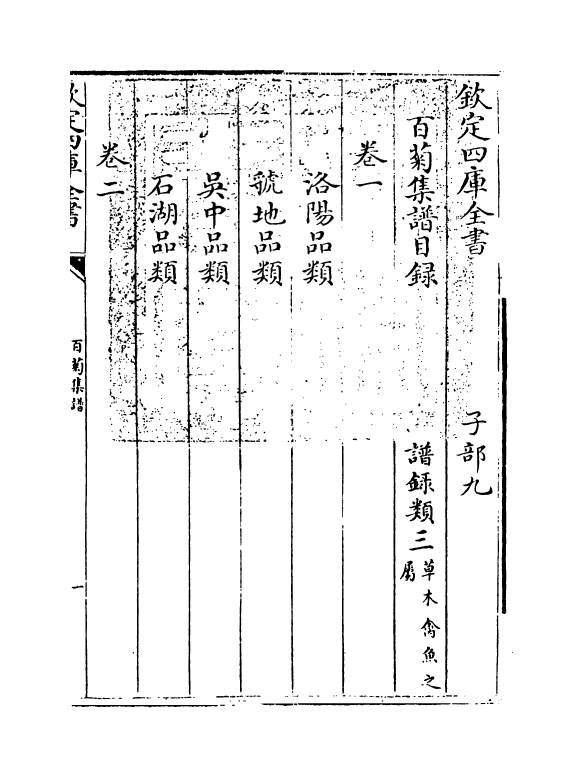 欽定四庫全書　子部九
百菊集譜目録　譜錄類三草木禽魚之屬
卷一
洛陽品類
虢地品類
吳中品類
石湖品類
卷二
欽定四庫全書
百菊集譜
一